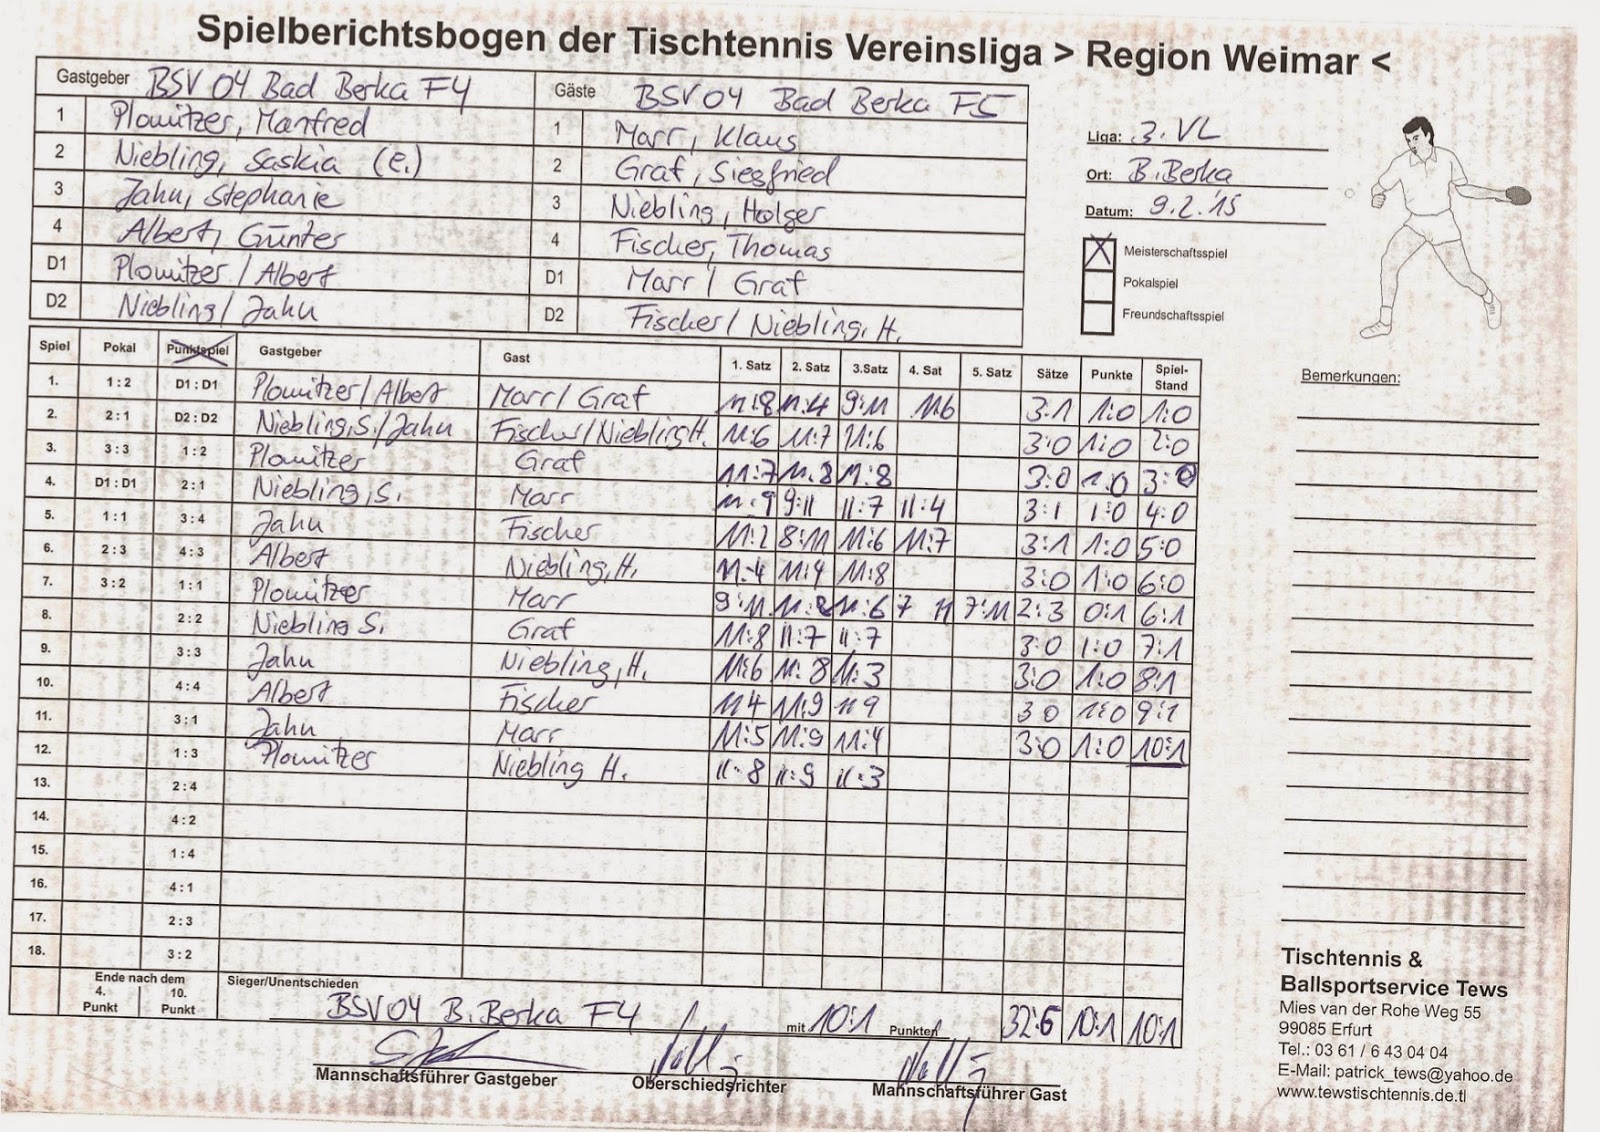 Spielberichtsbogen der Tischtennis Vereinsliga > Region Weimar <
Gastgeber BSV 04 Bad Berka F4 Gäste BSV 04 Bad Berka F5
1 Plomitzer, Manfred 1 Marr, Klaus
2 Niebling, Saskia (e.) 2 Graf, Siegfried
3 Jahn, Stephanie 3 Niebling, Holger
4 Albert, Günter 4 Fischer, Thomas
D1 Plomitzer / Albert D1 Marr / Graf
D2 Niebling / Jahn D2 Fischer / Niebling, H.
Liga: 3. VL
Ort: B. Berka
Datum: 9.2.'15
X Meisterschaftsspiel
Pokalspiel
Freundschaftsspiel
Spiel Pokal Punktspiel Gastgeber Gast 1. Satz 2. Satz 3.Satz 4. Sat 5. Satz Sätze Punkte Spiel-Stand
1. 1 : 2 D1 : D1 Plomitzer / Albert Marr / Graf 11:8 11:4 9:11 11:6 3:1 1:0 1:0
2. 2 : 1 D2 : D2 Niebling, S. / Jahn Fischer / Niebling H. 11:6 11:7 11:6 3:0 1:0 2:0
3. 3 : 3 1 : 2 Plomitzer Graf 11:7 11:8 11:8 3:0 1:0 3:0
4. D1 : D1 2 : 1 Niebling, S. Marr 11:9 9:11 11:7 11:4 3:1 1:0 4:0
5. 1 : 1 3 : 4 Jahn Fischer 11:2 8:11 11:6 11:7 3:1 1:0 5:0
6. 2 : 3 4 : 3 Albert Niebling, H. 11:4 11:4 11:8 3:0 1:0 6:0
7. 3 : 2 1 : 1 Plomitzer Marr 9:11 11:8 11:6 7 11 7:11 2:3 0:1 6:1
8. 2 : 2 Niebling S. Graf 11:8 11:7 11:7 3:0 1:0 7:1
9. 3 : 3 Jahn Niebling, H. 11:6 11:8 11:3 3:0 1:0 8:1
10. 4 : 4 Albert Fischer 11 4 11:9 11 9 3 0 1:0 9:1
11. 3 : 1 Jahn Marr 11:5 11:9 11:4 3:0 1:0 10:1
12. 1 : 3 Plomitzer Niebling H. 11:8 11:9 11:3
13. 2 : 4
14. 4 : 2
15. 1 : 4
16. 4 : 1
17. 2 : 3
18. 3 : 2
Ende nach dem
4. Punkt 10. Punkt
Sieger/Unentschieden
BSV 04 B. Berka F4 mit 10:1 Punkten 32:6 10:1 10:1
Mannschaftsführer Gastgeber Oberschiedsrichter Mannschaftsführer Gast
Bemerkungen:
Tischtennis &
Ballsportservice Tews
Mies van der Rohe Weg 55
99085 Erfurt
Tel.: 03 61 / 6 43 04 04
E-Mail: patrick_tews@yahoo.de
www.tewstischtennis.de.tl